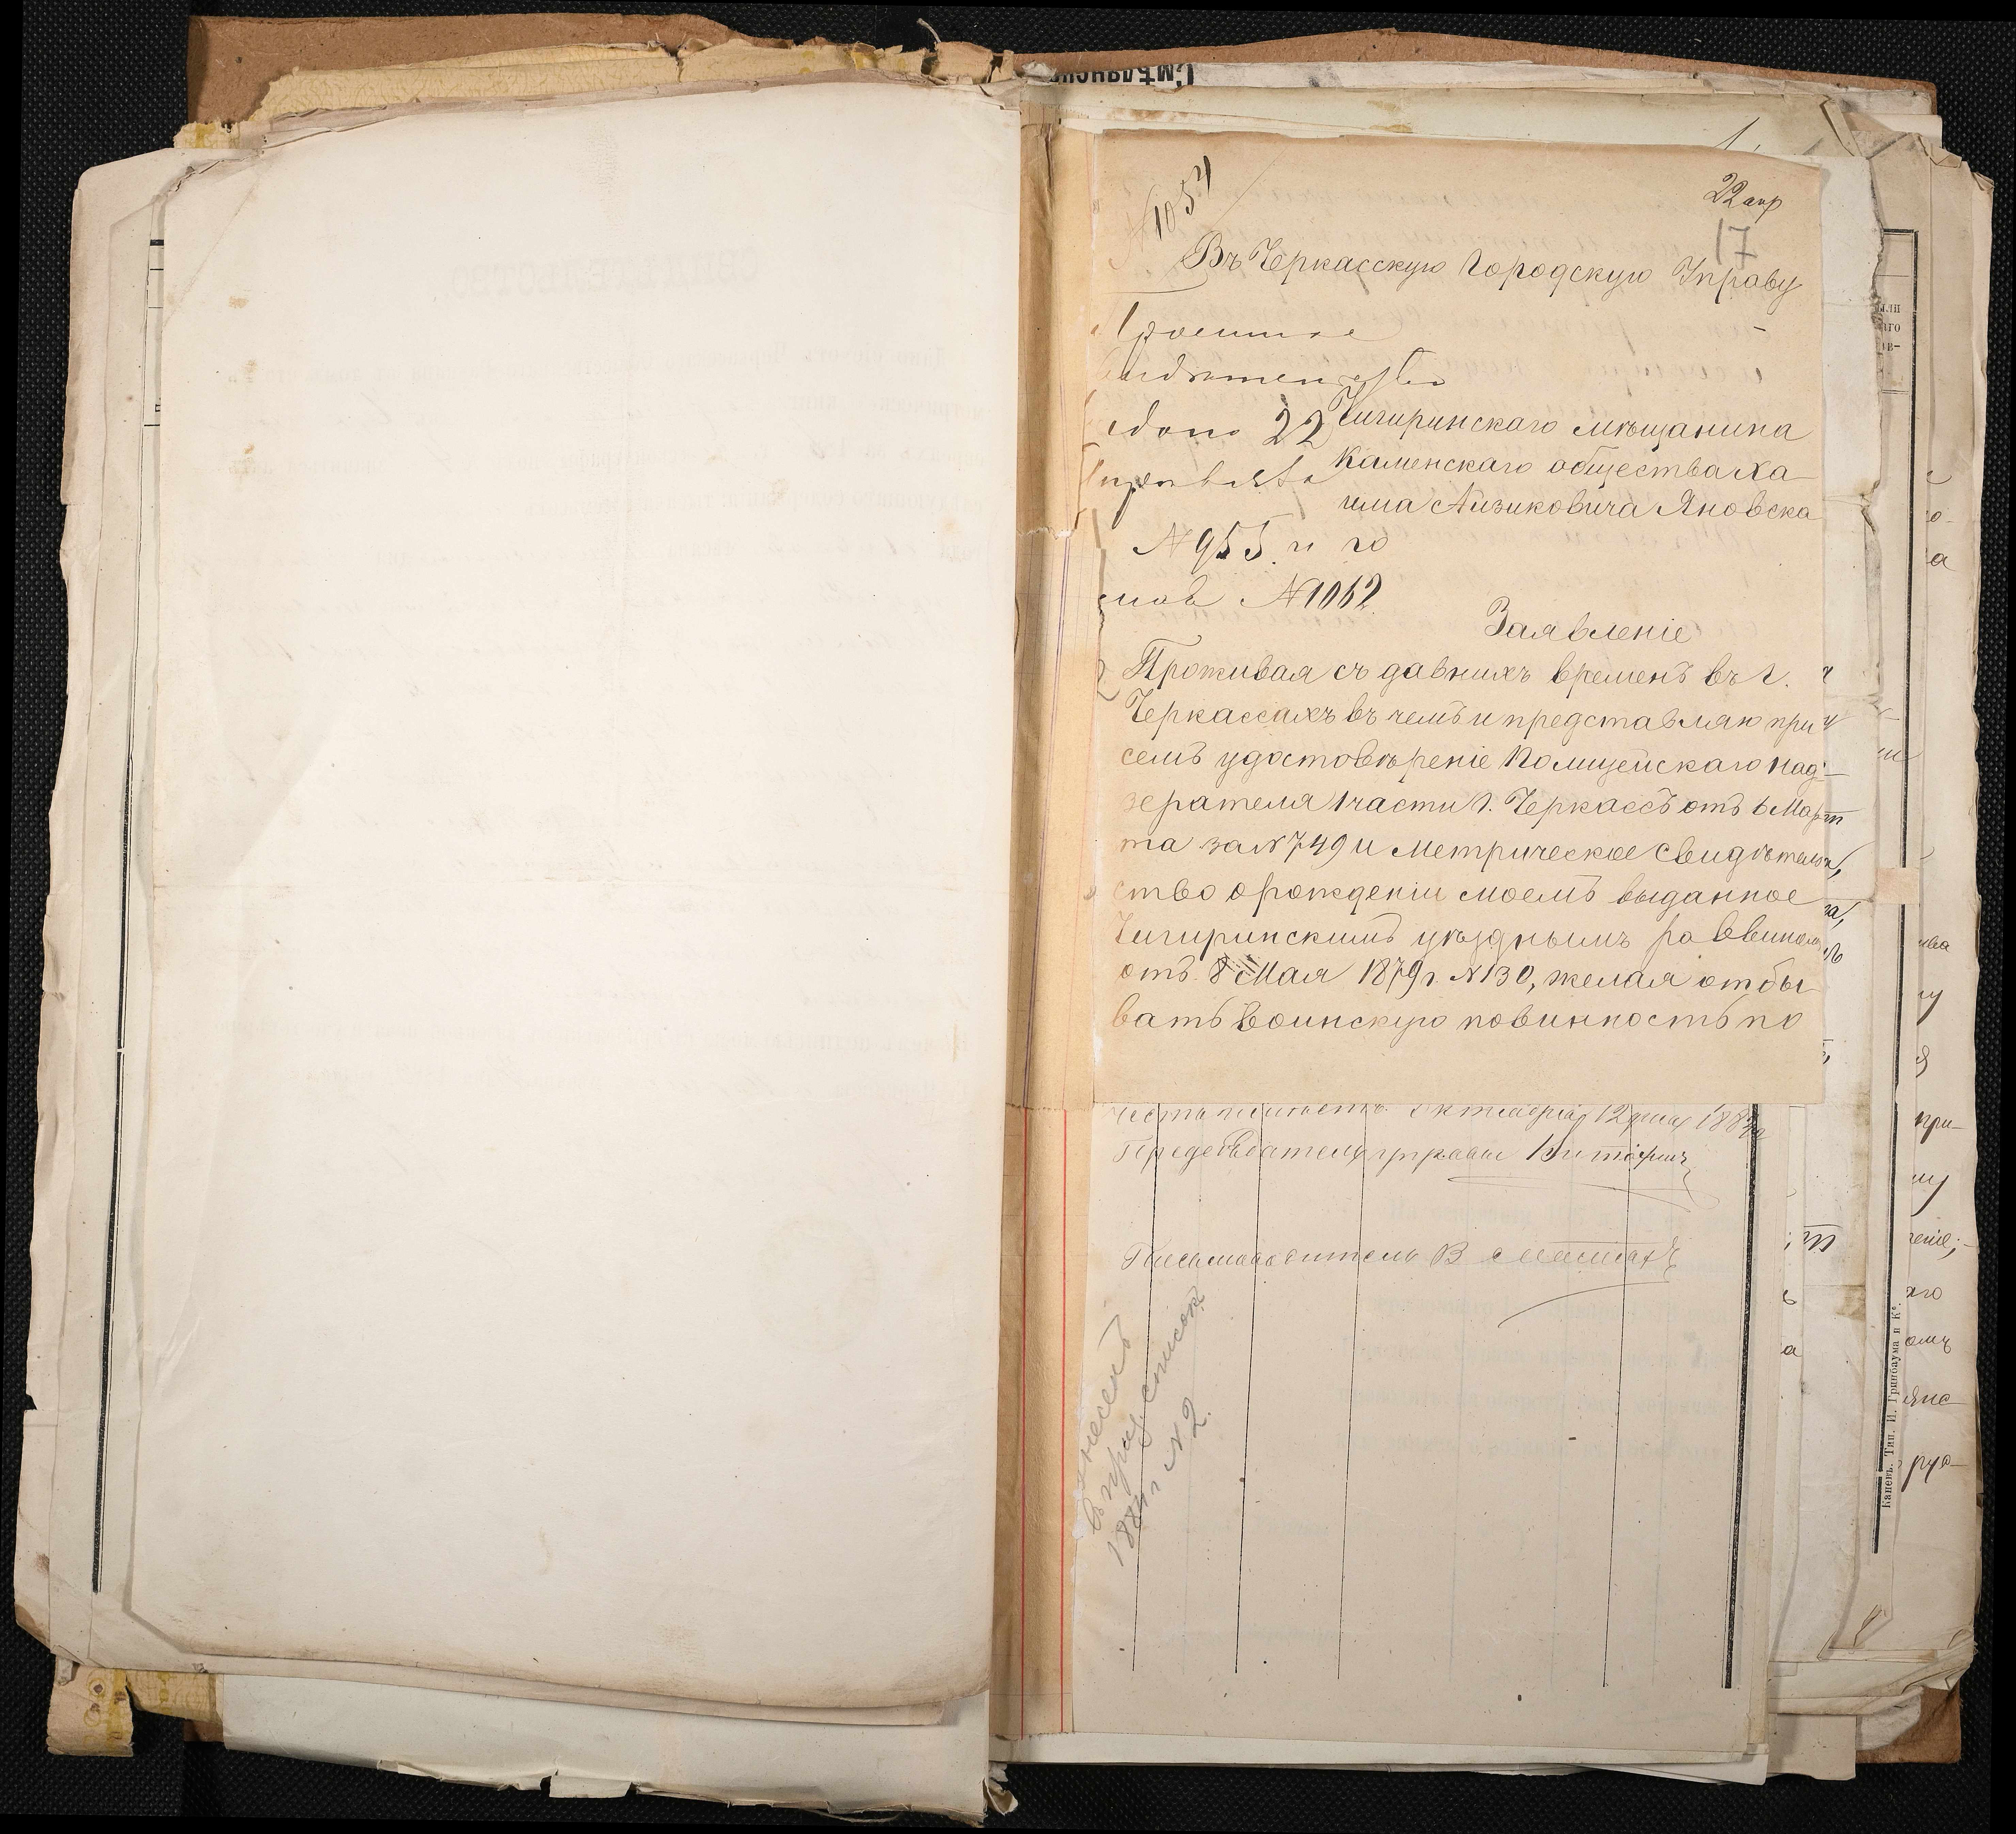 Смѣлянск
№ 1054
22 апр
17
Въ Черкасскую Городскую Управу
Чигиринскаго мѣщанина
Каменскаго общества Ха
има Айзиковича Яновска
22
№ 955. и го
№ 1062.
Заявленіе
Проживая съ давнихъ временъ въ г.
Черкассахъ въ чемъ и представляю при
семъ удостовѣреніе Полицейскаго над-
зерателя 1 части г. Черкассъ отъ 6 Мар
та за № 749 и Метрическое Свидѣтель
ство о рожденіи моемъ выданное
Чигиринскимъ уѣзднымъ раввиномъ
отъ 8 Мая 1879 г. № 130, желая отбы
вать воинскую повинность по
Октября 12 дня 188
Предсѣдатель управы
Письмоводитель В
внесенъ
въ приз. списокъ
1884 г. № 2.
Каневъ. Тип. И. Гринбаума и Ко.